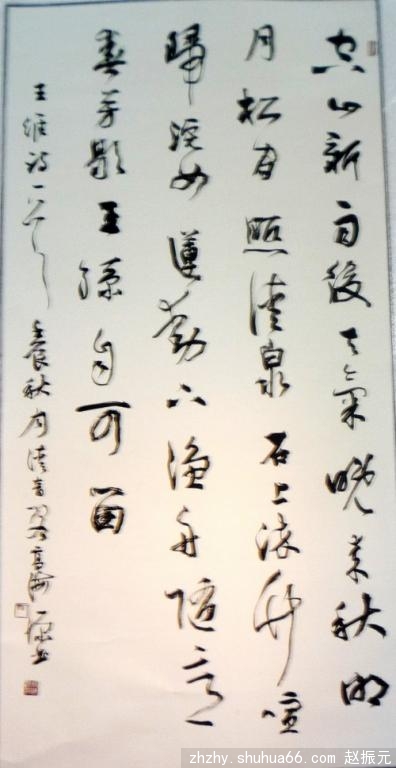 空山新雨後天氣晚來秋明
月松间照清泉石上流竹喧
歸浣女蓮動下漁舟隨意
春芳歇王孫自可留
王維詩一首 壬辰秋月清音
zhzhy.shuhua66.com 赵振元